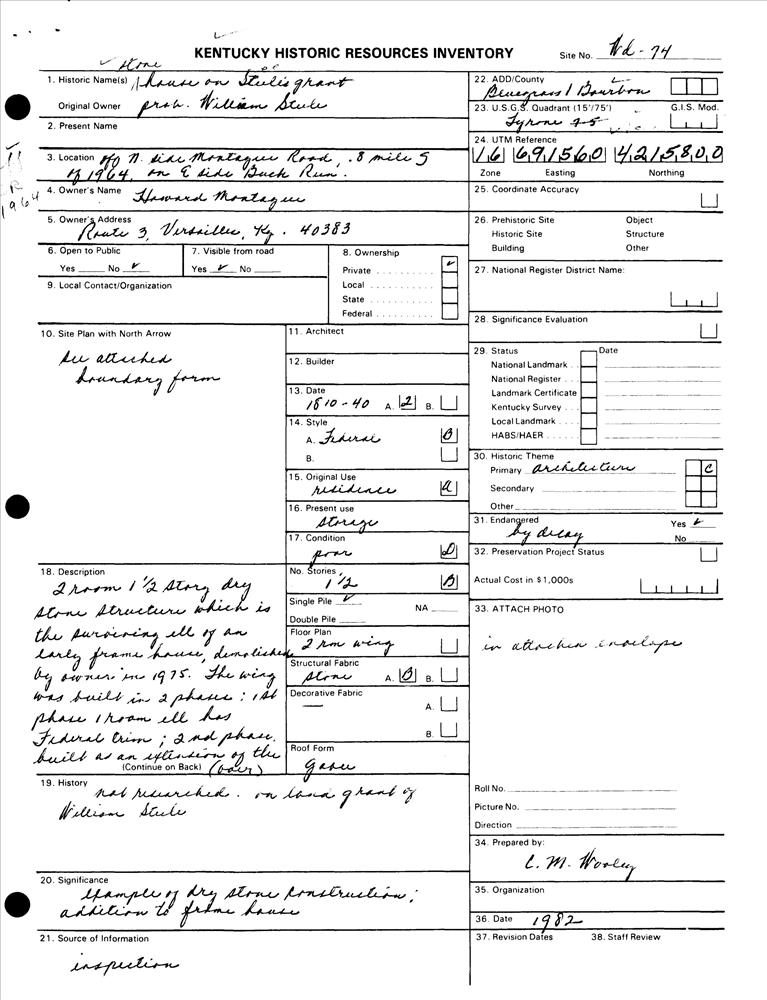 KENTUCKY HISTORIC RESOURCES INVENTORY
Site No. Wd-74
1. Historic Name(s) stone house on Steele's grant
Original Owner prob. William Steele
2. Present Name
3. Location off N. side Montague Road, .8 mile S
of 1964, on E side Buck Run.
1964
4. Owner's Name Howard Montague
5. Owner's Address
Route 3, Versailles, Ky. 40383
6. Open to Public
Yes No ✓
7. Visible from road
Yes ✓ No
8. Ownership
Private ✓
Local
State
Federal
9. Local Contact/Organization
10. Site Plan with North Arrow
see attached
boundary form
11. Architect
12. Builder
13. Date
1810-40 A. 2 B.
14. Style
A. Federal B
B.
15. Original Use
residence A
16. Present use
storage
17. Condition
poor D
18. Description
2 room 1 1/2 story dry
stone structure which is
the surviving ell of an
early frame house, demolished
by owner in 1975. The wing
was built in 2 phases: 1st
phase 1 room ell has
Federal trim; 2nd phase
built as an extension of the
(Continue on Back) (over)
No. Stories
1 1/2 B
Single Pile ✓
NA
Double Pile
Floor Plan
2 rm wing
Structural Fabric
stone A. B B.
Decorative Fabric
— A.
B.
Roof Form
gable
19. History
not researched. on land grant of
William Steele
20. Significance
Example of dry stone construction;
addition to frame house
21. Source of Information
inspection
22. ADD/County
Bluegrass / Bourbon
23. U.S.G.S. Quadrant (15'/75') G.I.S. Mod.
Tyrone 7.5
24. UTM Reference
16 691560 4215800
Zone Easting Northing
25. Coordinate Accuracy
26. Prehistoric Site Object
Historic Site Structure
Building Other
27. National Register District Name:
28. Significance Evaluation
29. Status Date
National Landmark
National Register
Landmark Certificate
Kentucky Survey
Local Landmark
HABS/HAER
30. Historic Theme
Primary architecture C
Secondary
Other
31. Endangered Yes ✓
by decay No
32. Preservation Project Status
Actual Cost in $1,000s
33. ATTACH PHOTO
in attached envelope
Roll No.
Picture No.
Direction
34. Prepared by:
C. M. Wooley
35. Organization
36. Date 1982
37. Revision Dates 38. Staff Review